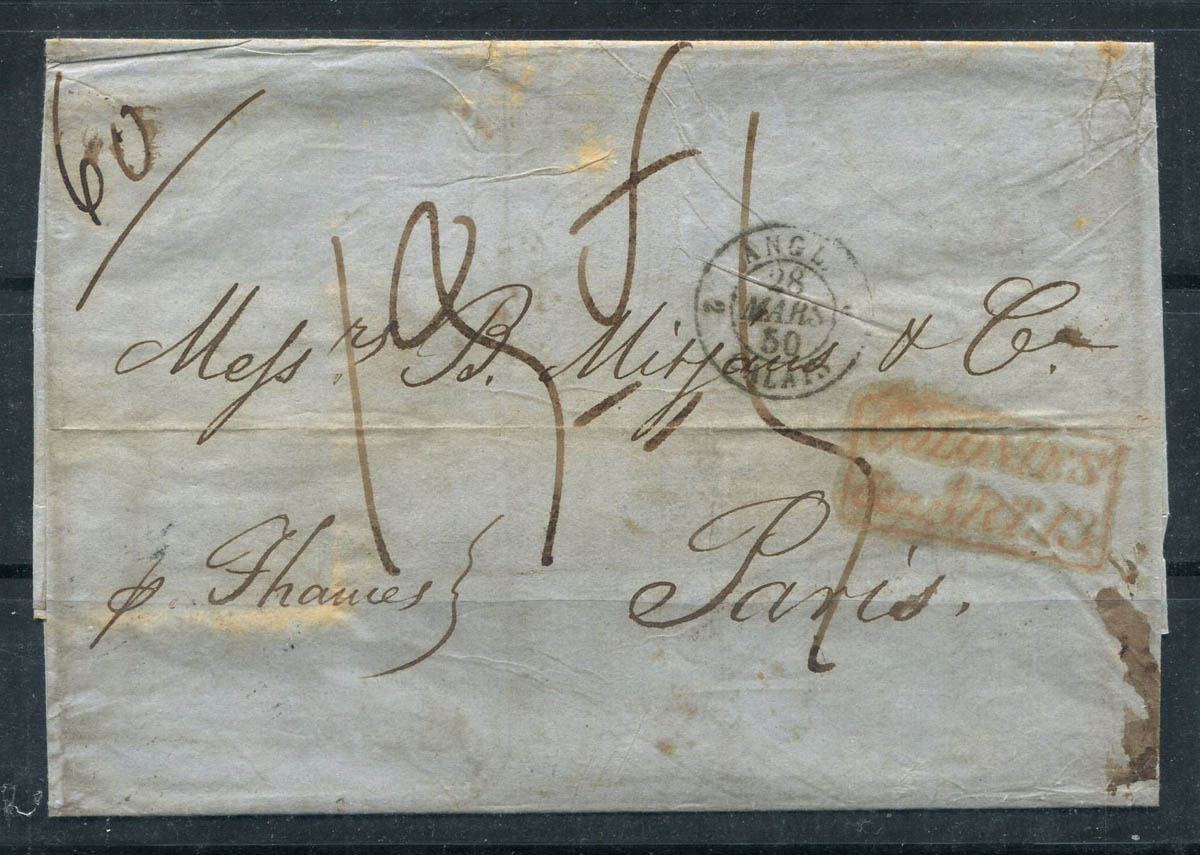 60/
ANGL.
2 28 2
MARS
50
CALAIS
Messrs. B. Mitjans & Co.
COLONIES
&c. ART. 13.
p. Thames
Paris.